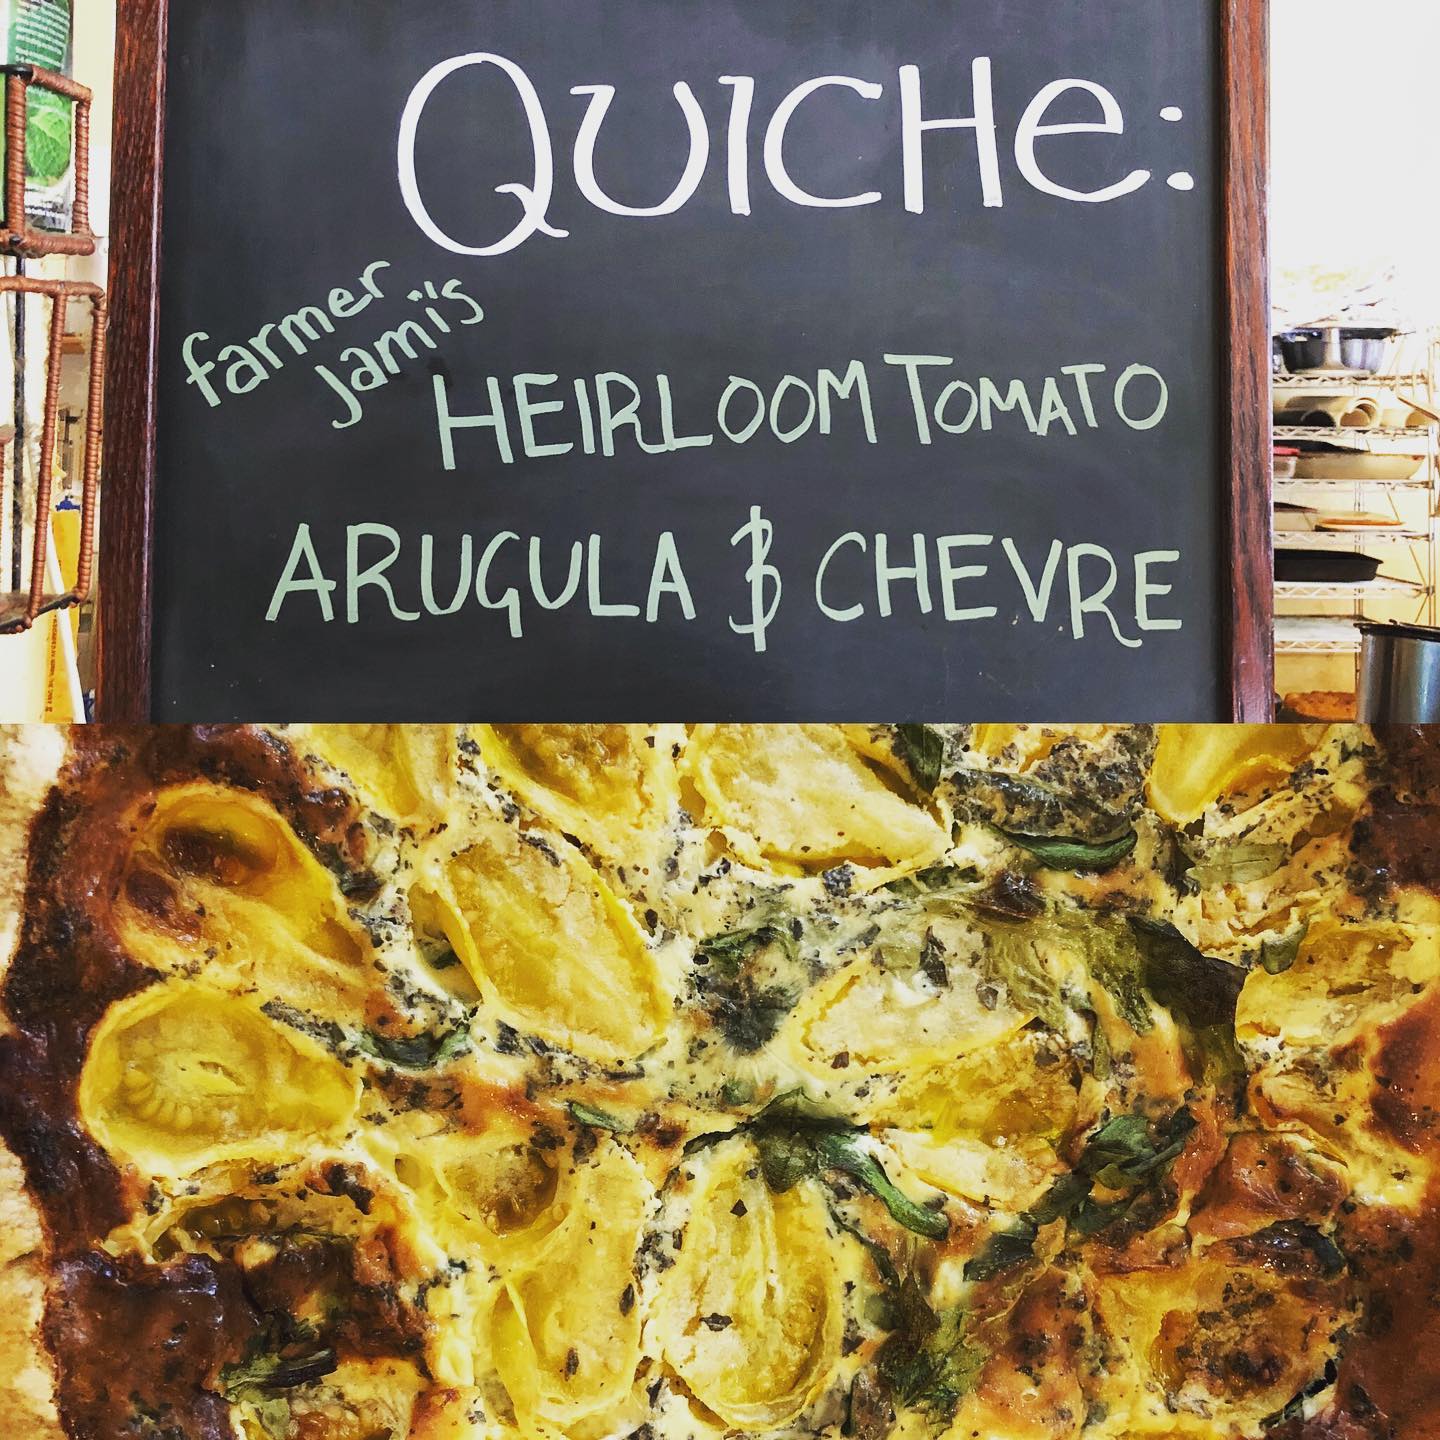 QUICHE:
farmer
Jami's
HEIRLOOM TOMATO
ARUGULA & CHEVRE